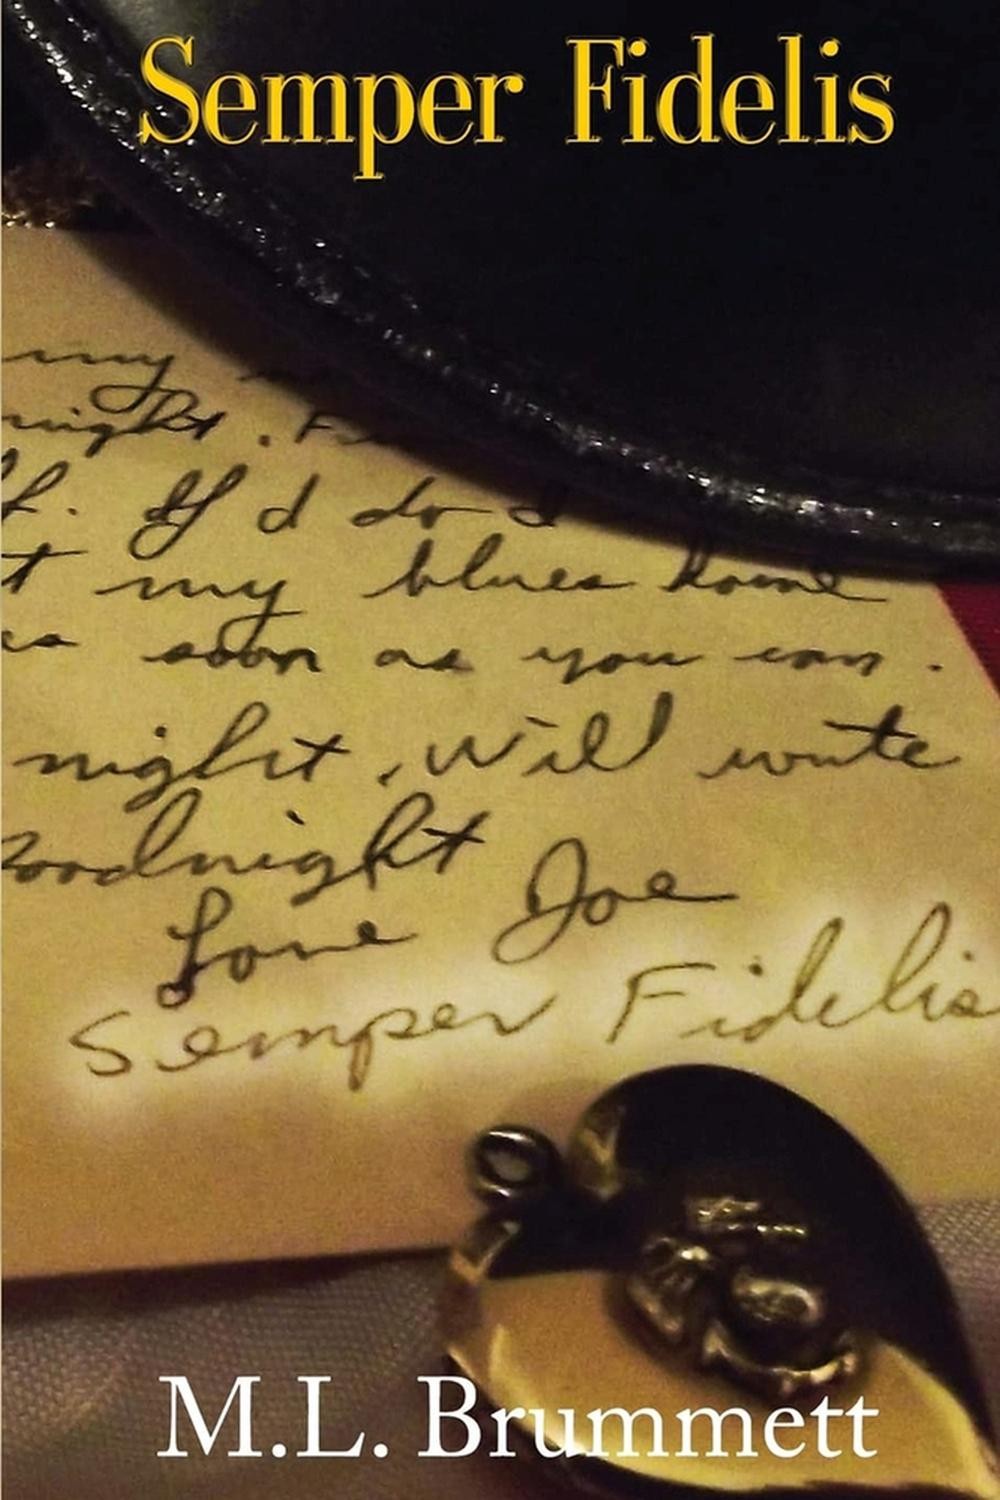 Semper Fidelis
my
night.
If I'd do
my blues home
soon as you can.
night. Will write
Goodnight
Love Joe
Semper Fidelis
M.L. Brummett